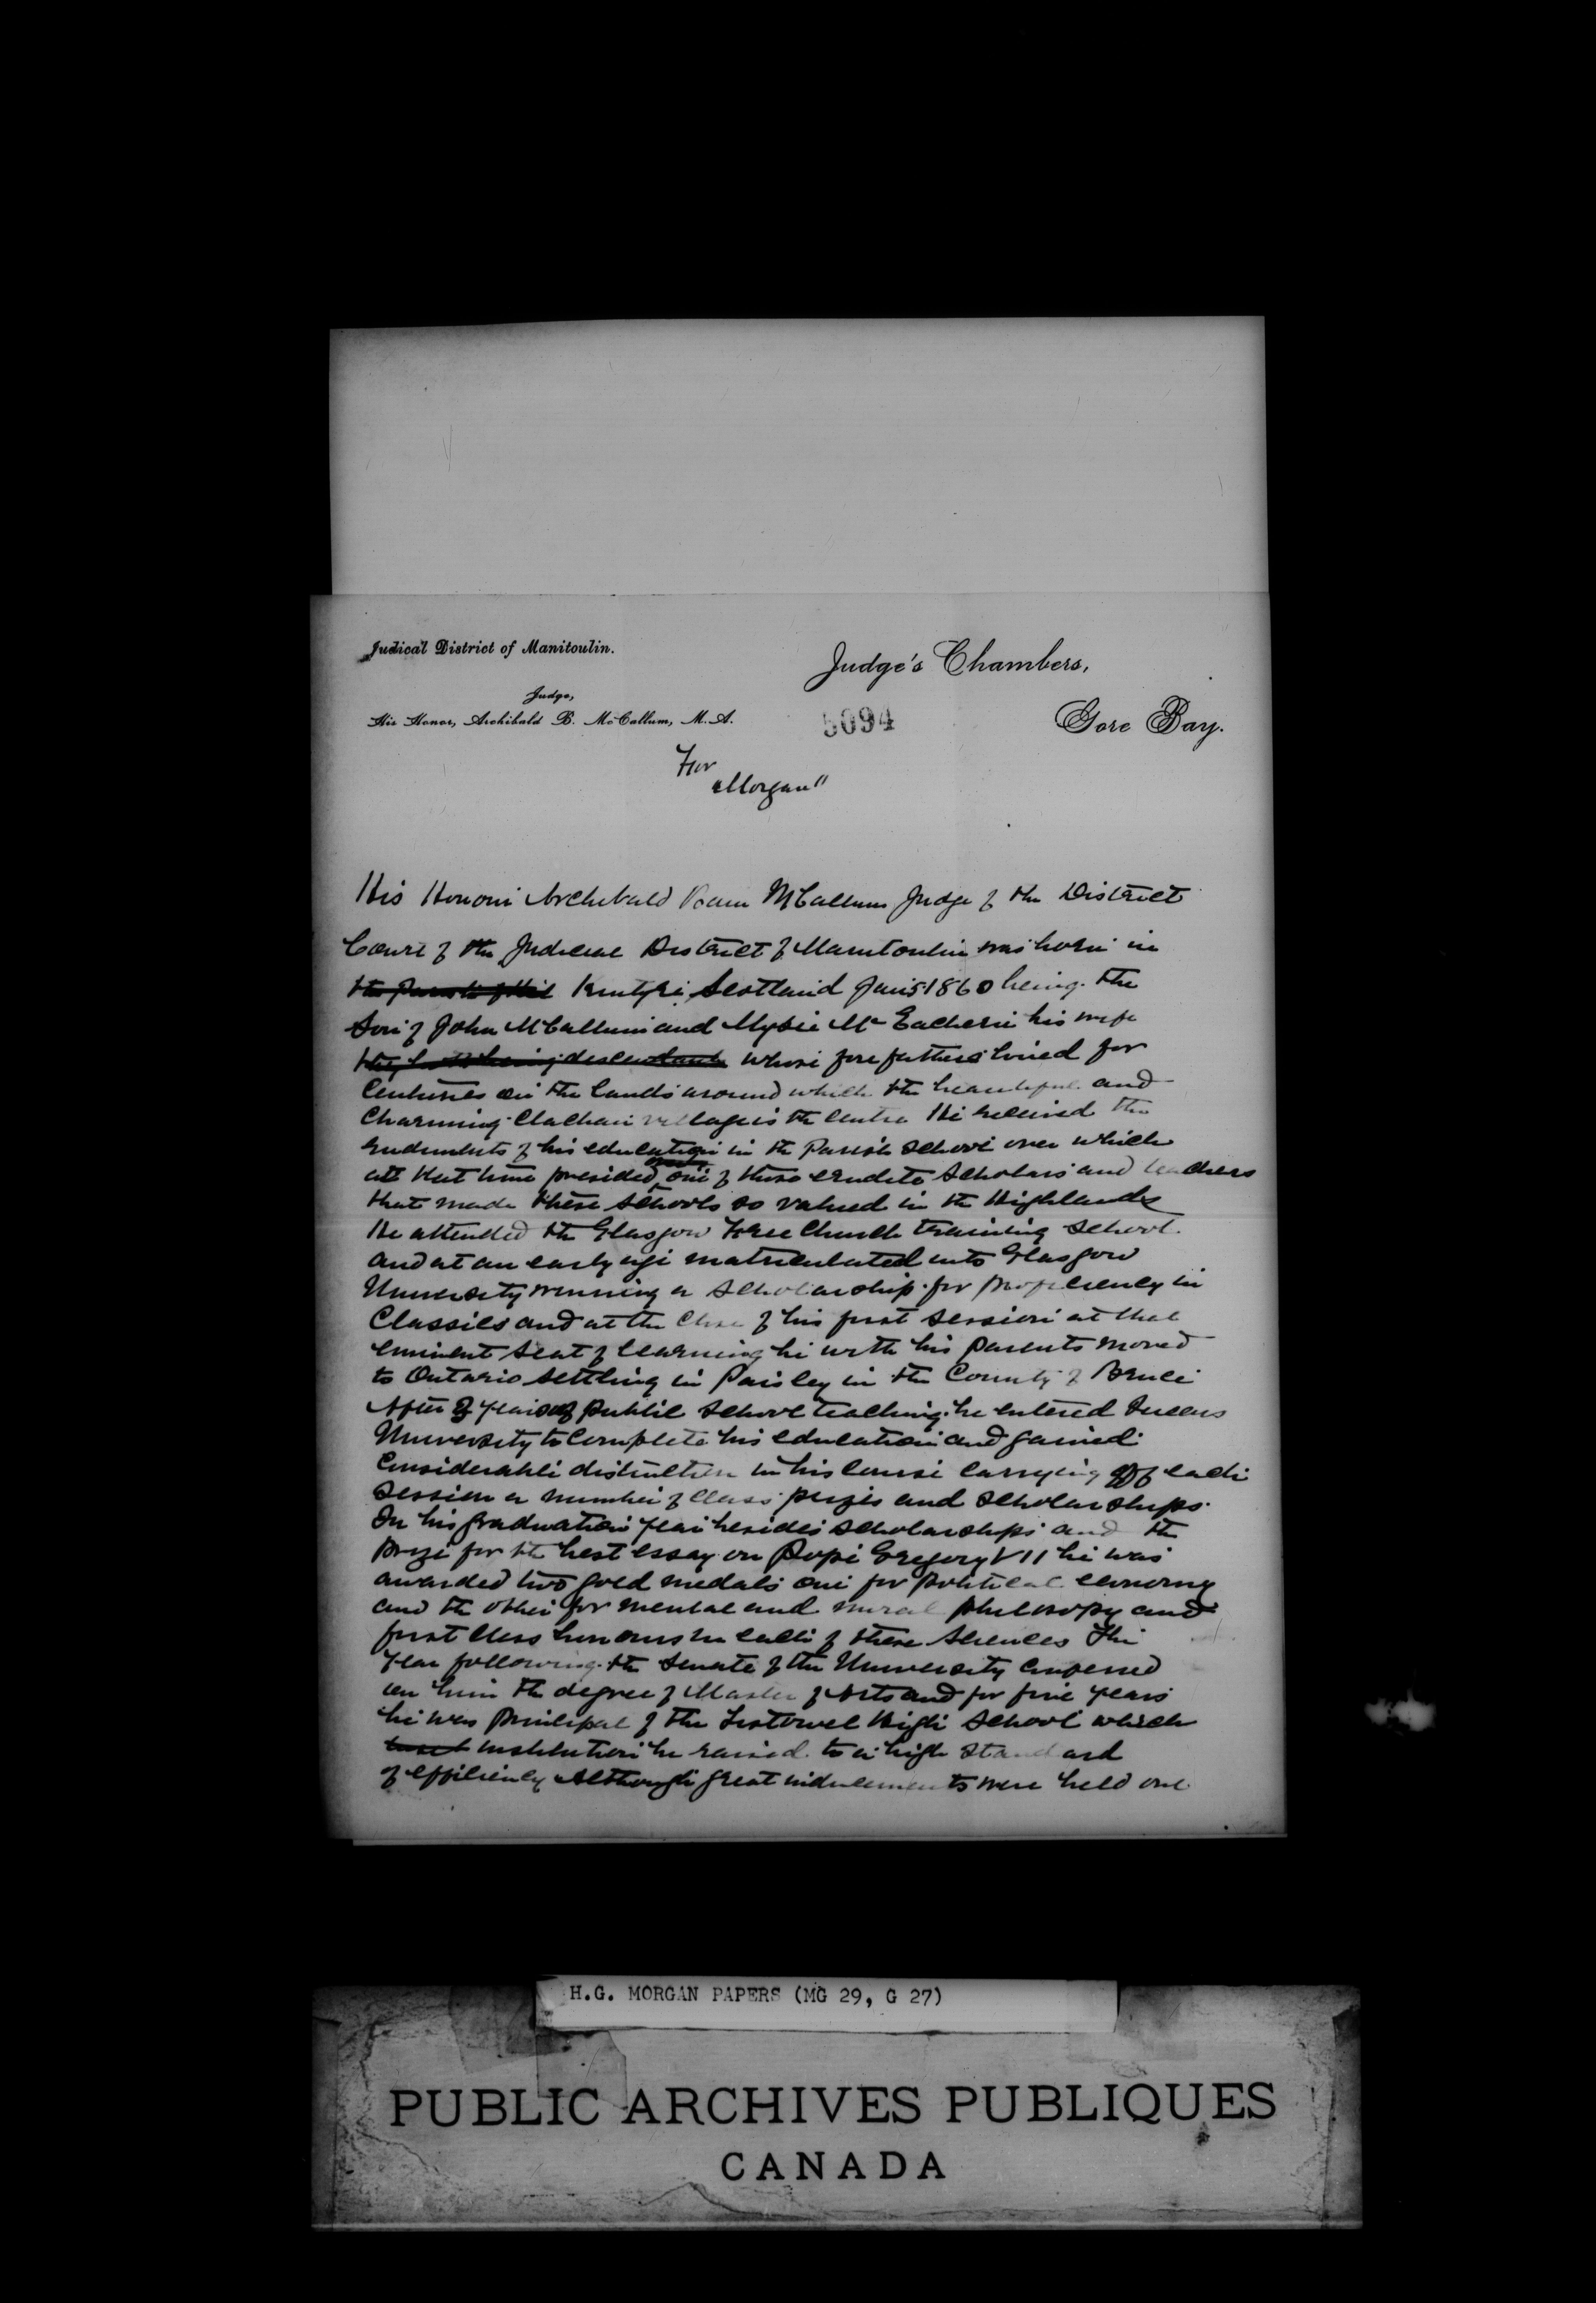 Judical District of Manitoulin.
Judge's Chambers,
Judge,
His Honor, Archibald B. McCallum, M.A.
5094
Gore Bay.
For
"Morgan"
His Honour Archibald McCallum Judge of the District
Court of the Judicial District of Manitoulin was born in
Kintyre Scotland Jan 5 1860 being the
Son of John McCallum and Mysie McEachern his wife
whose forefathers lived for
Centuries on the lands around which the beautiful and
Charming Clachan village is the centre He received the
rudiments of his education in the Parish School over which
at that time presided one of those erudite Scholars and teachers
that made these schools so valued in the Highlands
He attended the Glasgow Free Church training School.
and at an early age matriculated into Glasgow
University winning a Scholarship for proficiency in
Classics and at the Close of his first session at that
eminent Seat of learning he with his parents moved
to Ontario settling in Paisley in the County of Bruce
After years of public school teaching he entered Queens
University to Complete his education and gained
Considerable distinction in his course carrying off each
session a number of class prizes and scholarships.
In his graduation year besides scholarships and the
Prize for the best essay on Pope Gregory VII he was
awarded two gold medals one for political economy
and the other for mental and moral philosopy and
first class honours in each of these Sciences The
year following the Senate of the University Conferred
on him the degree of Master of Arts and for five years
he was principal of the Listowel High School which
institution he raised to a high standard
of efficiency Although great inducements were held out
H.G. MORGAN PAPERS (MG 29, G 27)
PUBLIC ARCHIVES PUBLIQUES
CANADA